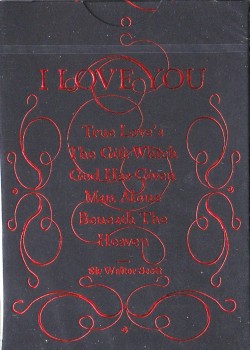 I LOVE YOU
True Love's
The Gift Which
God Has Given
Man Alone
Beneath The
Heaven
Sir Walter Scott